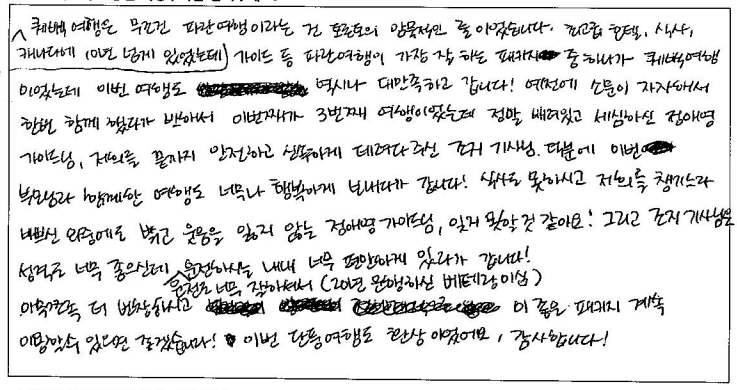 퀘벡 여행은 무조건 파란여행이라는 건 토론토의 암묵적인 룰이었습니다. 최고급 호텔, 식사,
캐나다에 10년 넘게 있었는데 가이드 등 파란여행이 가장 잘 하는 패키지 중 하나가 퀘벡여행
이었는데 이번 여행도 역시나 대만족하고 갑니다! 예전에 소문이 자자해서
한번 함께 했다가 반해서 이번까지가 3번째 여행이었는데 정말 배려있고 세심하신 정애영
가이드님, 저희를 끝까지 안전하고 신속하게 데려다주신 조지 기사님. 덕분에 이번
부모님과 함께한 여행도 너무나 행복하게 보내다가 갑니다! 식사도 못하시고 저희를 챙기느라
바쁘신 와중에도 밝고 웃음을 잃지 않는 정애영 가이드님, 잊지 못할 것 같아요! 그리고 조지 기사님은
성격도 너무 좋으신데 운전하시는 내내 너무 편안하게 있다가 갑니다!
운전도 너무 잘하셔서 (20년 운행하신 베테랑이심)
더 번창하시고 이 좋은 패키지 계속
있으면 좋겠습니다! 이번 단풍여행도 환상이었어요, 감사합니다!